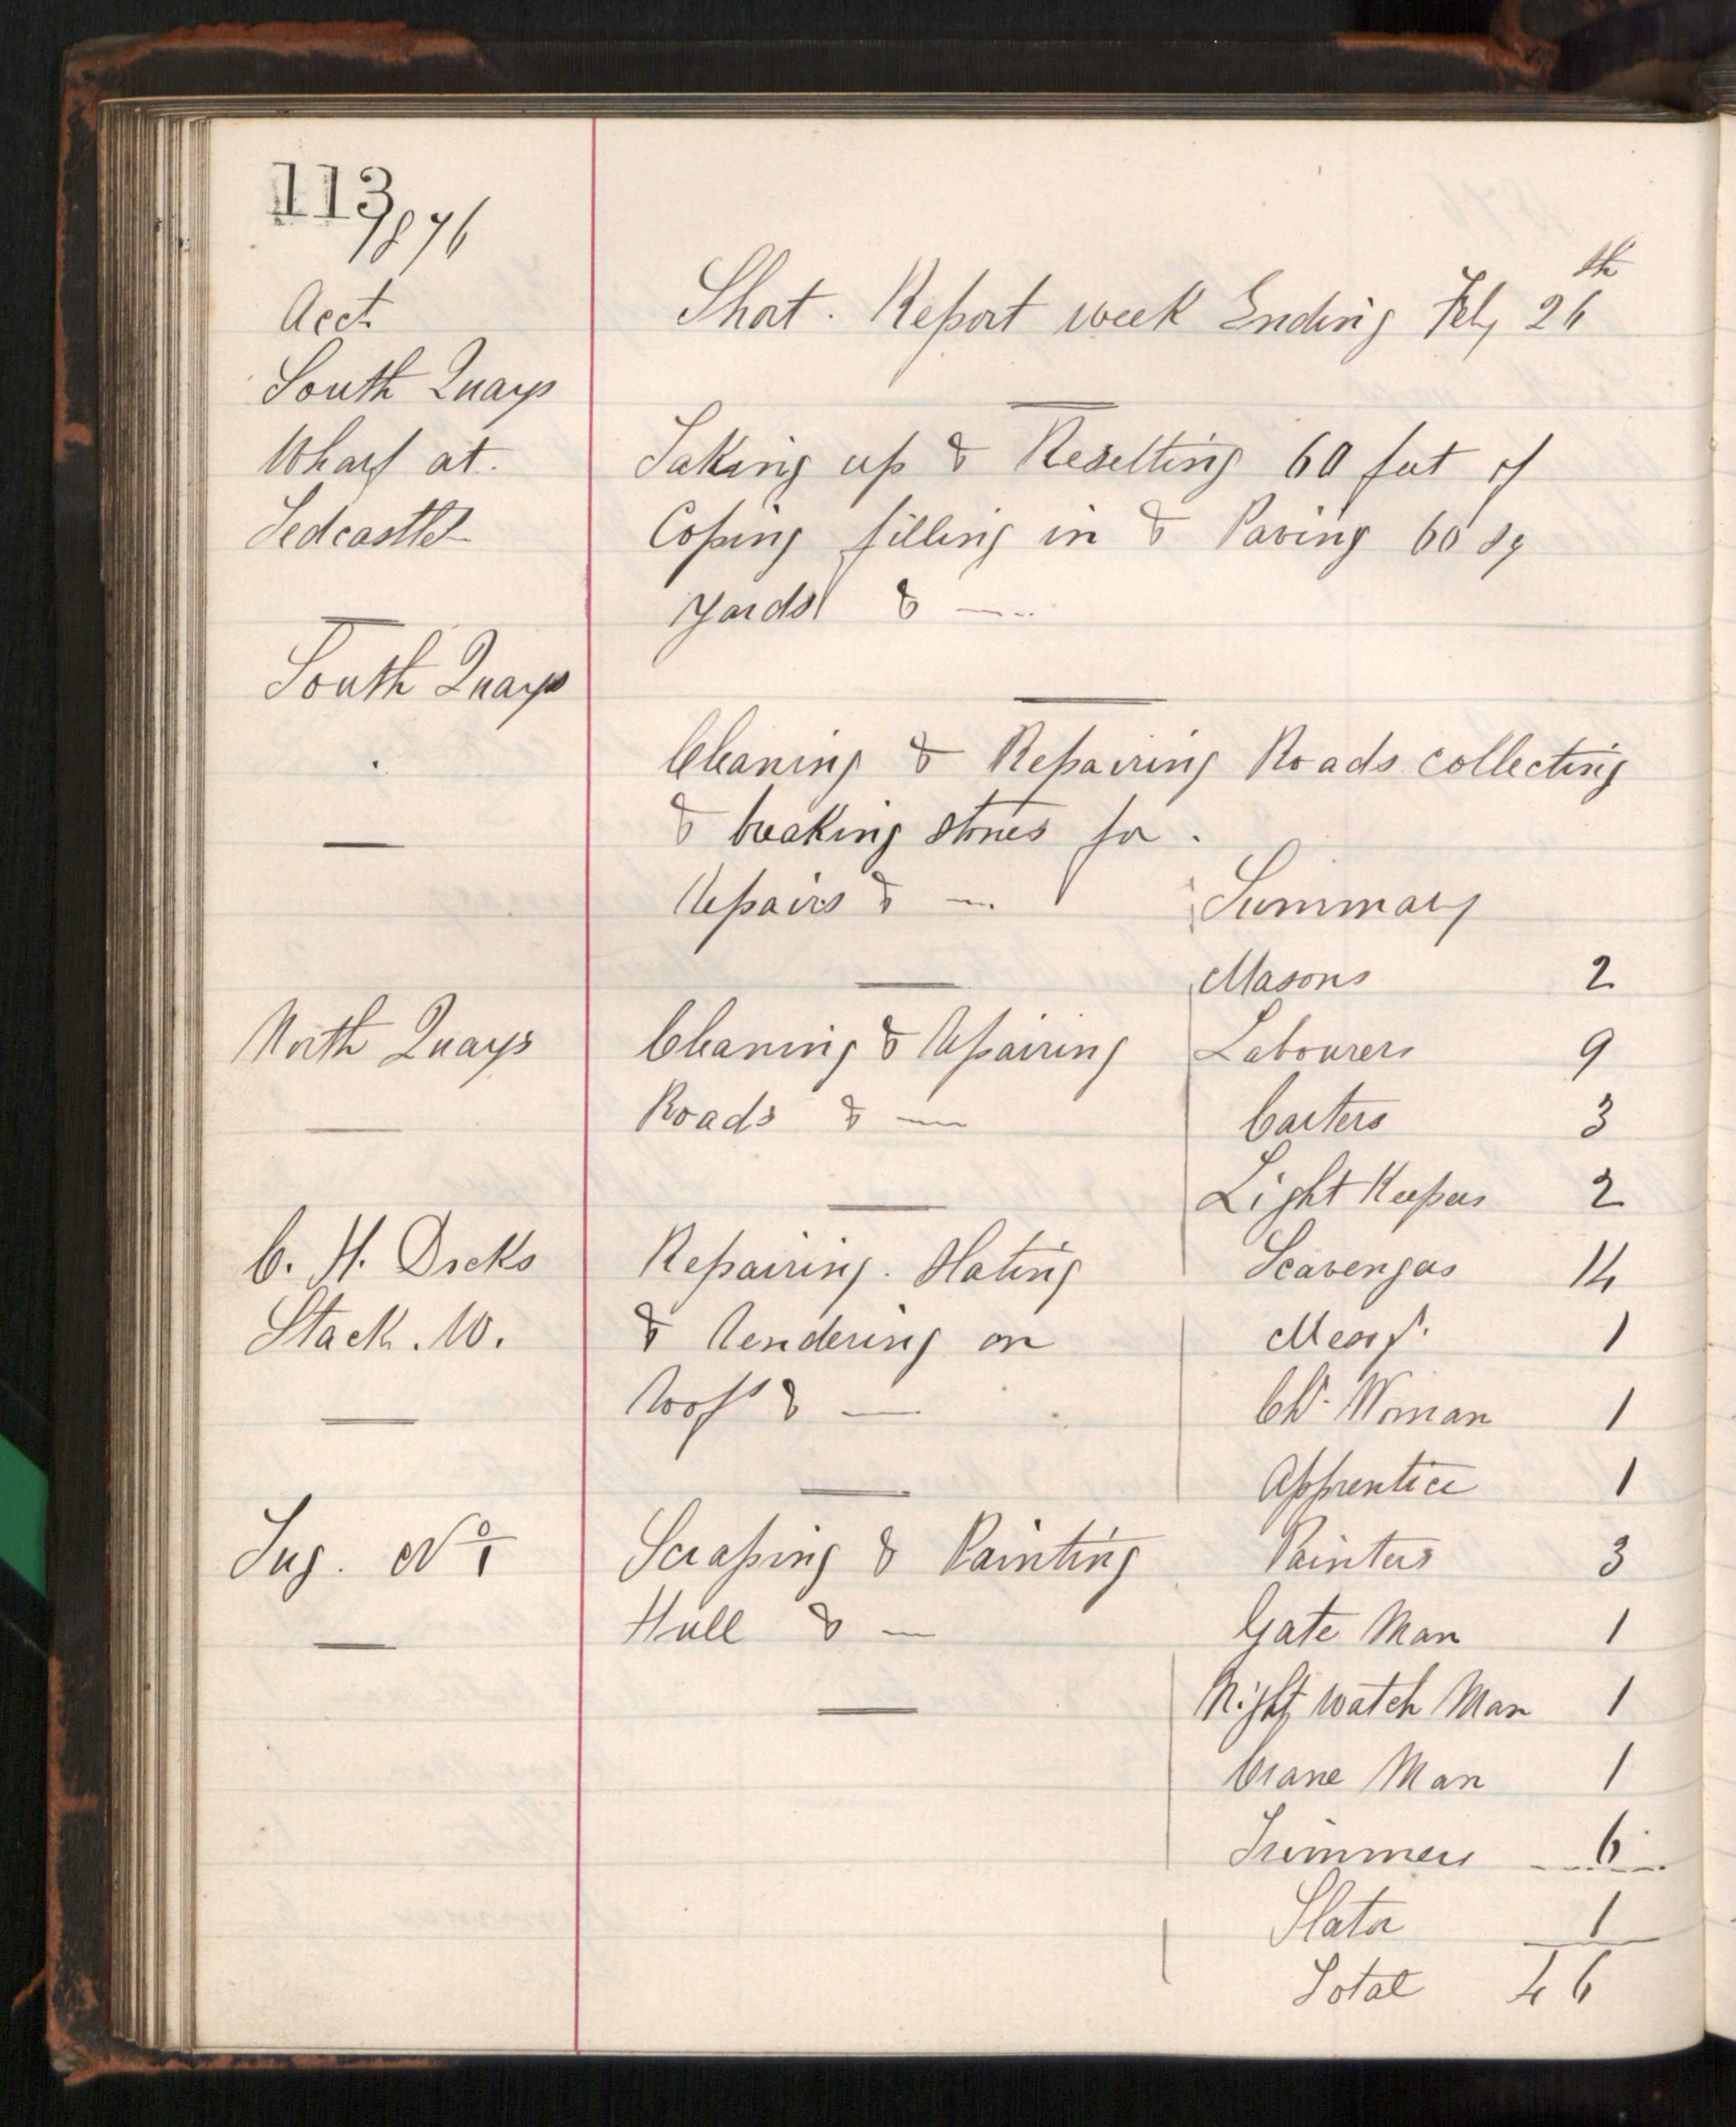 113
1876
Acct.
Short. Report week Ending Feby 26th
South Quays
Wharf at.
Taking up & Resetting 60 feet of
Tedcastles
Coping filling in & Paving 60 sq
yards &
South Quays
Cleaning & Repairing Roads collecting
& breaking stones for
Repairs &
Summary
Masons 2
North Quays
Cleaning & Repairing
Labourers 9
Roads &
Carters 3
Light Keepers 2
C. H. Dicks
Repairing. Slating
Scavengers 14
Stack. W.
& Rendering on
1
Roof &
Woman 1
Apprentice 1
Tug. No 1
Scraping & Painting
Painters 3
Hull &
Gate Man 1
Night watch Man 1
Crane Man 1
Trimmers 6
Slater 1
Total 46